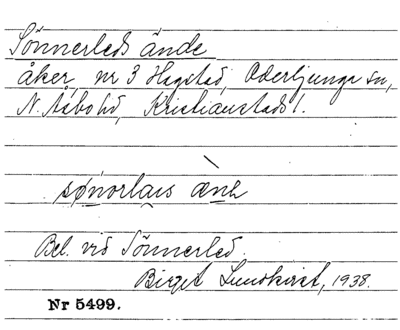 Sönnerleds ände
åker, nr 3 Hagstad, Oderljunga sn,
N. Åsbo hd, Kristianstads l.
Bel. vid Sönnerled.
Birgit Lundkvist, 1938.
Nr 5499.